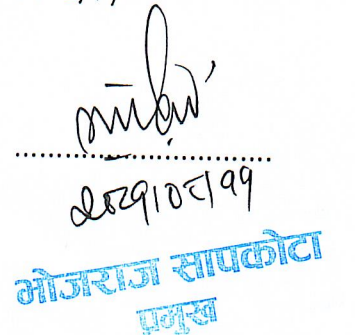 २०८१।०८।११
भोजराज सापकोटा
प्रमुख